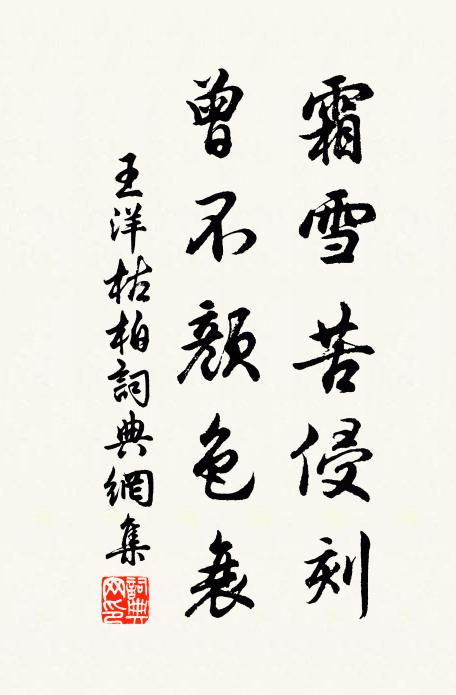 霜雪苦侵刻
曾不顏色衰
王洋枯柏詞典網集
詞典网印